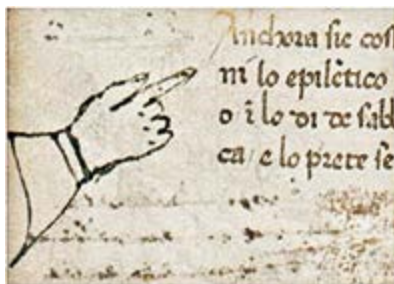 Anchora sic cos
ni lo epilētico
o ī lo di de sabb
ca / e lo prete se